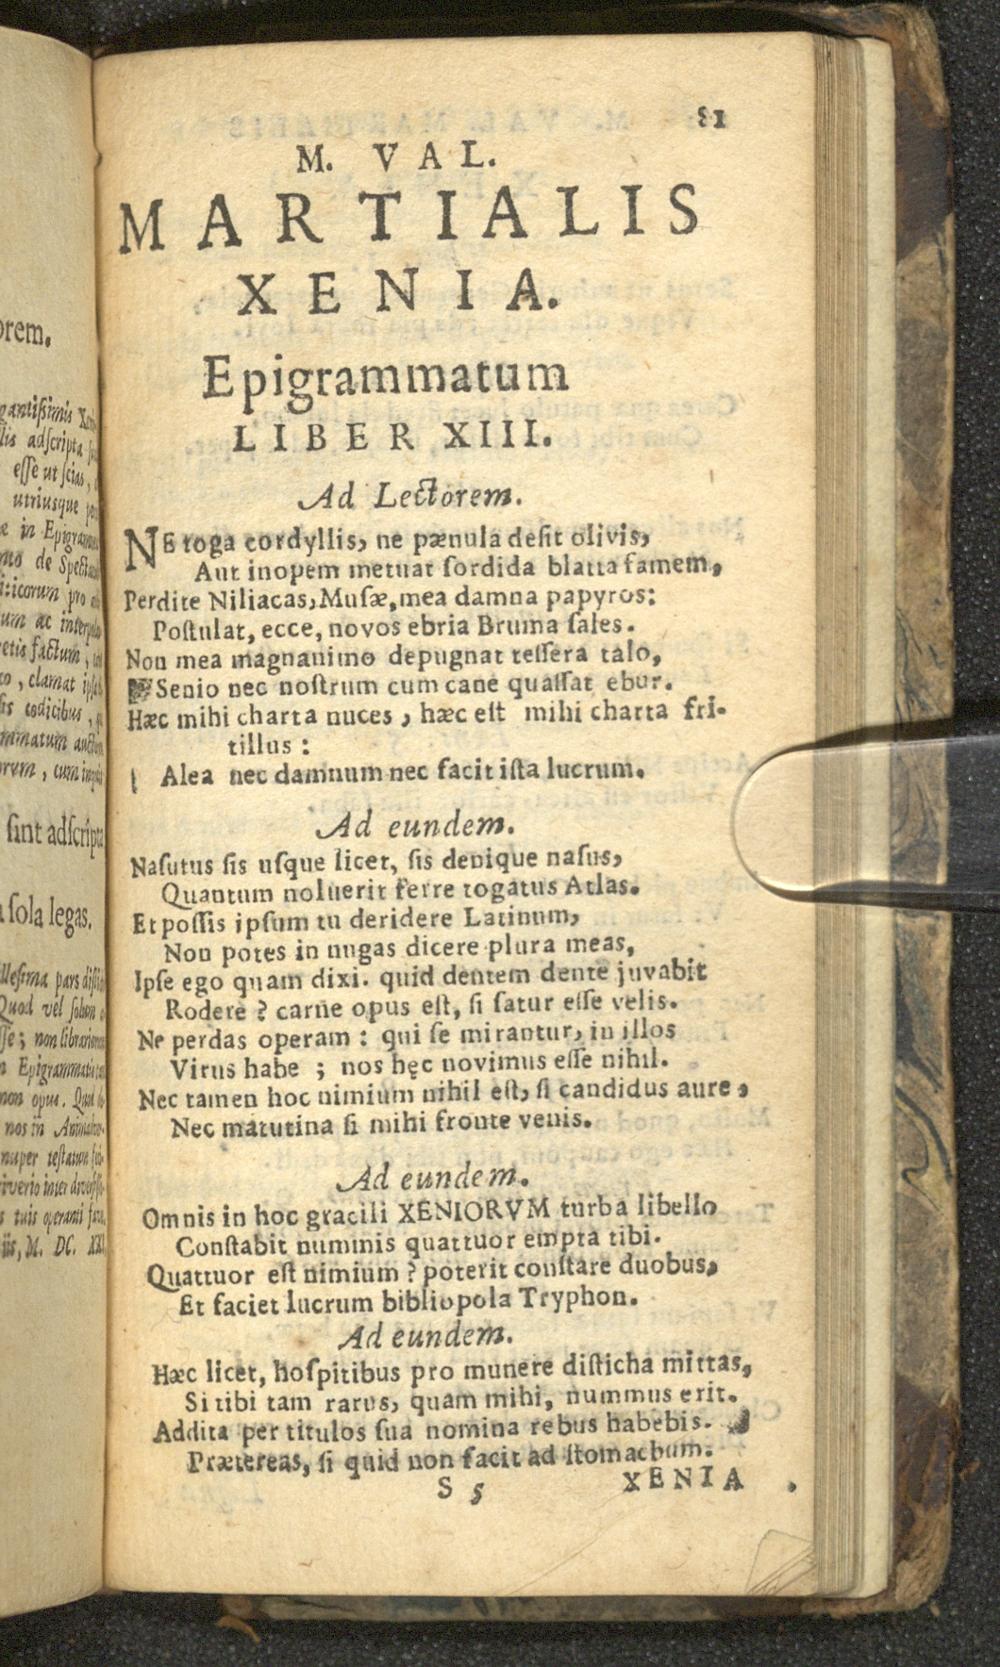 orem.
gantißimis Xe
lis adſcripta
eſſe ut ſcias,
utriusque
æ in Epigram
de Spect
iticorum pro
um ac
etis factum,
co, clamat
is codicibus,
mmatum
orum, cum
ſint adſcripta
ſola legas.
lleſima pars diſti
Quod vel ſolum
ſſe; non librario
Epigrammati
non opus. Quod
nos in
nuper teſtatum
riverio inter diverſ
s tuis operanti
iis, M. DC. XXI
81
M. VAL.
MARTIALIS
XENIA.
Epigrammatum
LIBER XIII.
Ad Lectorem.
NE toga cordyllis, ne pænula deſit olivis,
Aut inopem metuat ſordida blatta famem,
Perdite Niliacas, Muſæ, mea damna papyros:
Poſtulat, ecce, novos ebria Bruma ſales.
Non mea magnanimo depugnat teſſera talo,
Senio nec noſtrum cum cane quaſſat ebur.
Hæc mihi charta nuces, hæc eſt mihi charta fri-
tillus:
Alea nec damnum nec facit iſta lucrum.
Ad eundem.
Naſutus ſis uſque licet, ſis denique naſus,
Quantum noluerit ferre togatus Atlas.
Et poſſis ipſum tu deridere Latinum,
Non potes in nugas dicere plura meas,
Ipſe ego quam dixi. quid dentem dente juvabit
Rodere? carne opus eſt, ſi ſatur eſſe velis.
Ne perdas operam: qui ſe mirantur, in illos
Virus habe; nos hęc novimus eſſe nihil.
Nec tamen hoc nimium nihil eſt, ſi candidus aure,
Nec matutina ſi mihi fronte venis.
Ad eundem.
Omnis in hoc gracili XENIORVM turba libello
Conſtabit nummis quattuor empta tibi.
Quattuor eſt nimium? poterit conſtare duobus,
Et faciet lucrum bibliopola Tryphon.
Ad eundem.
Hæc licet, hoſpitibus pro munere diſticha mittas,
Si tibi tam rarus, quam mihi, nummus erit.
Addita per titulos ſua nomina rebus habebis.
Prætereas, ſi quid non facit ad ſtomachum.
S 5 XENIA